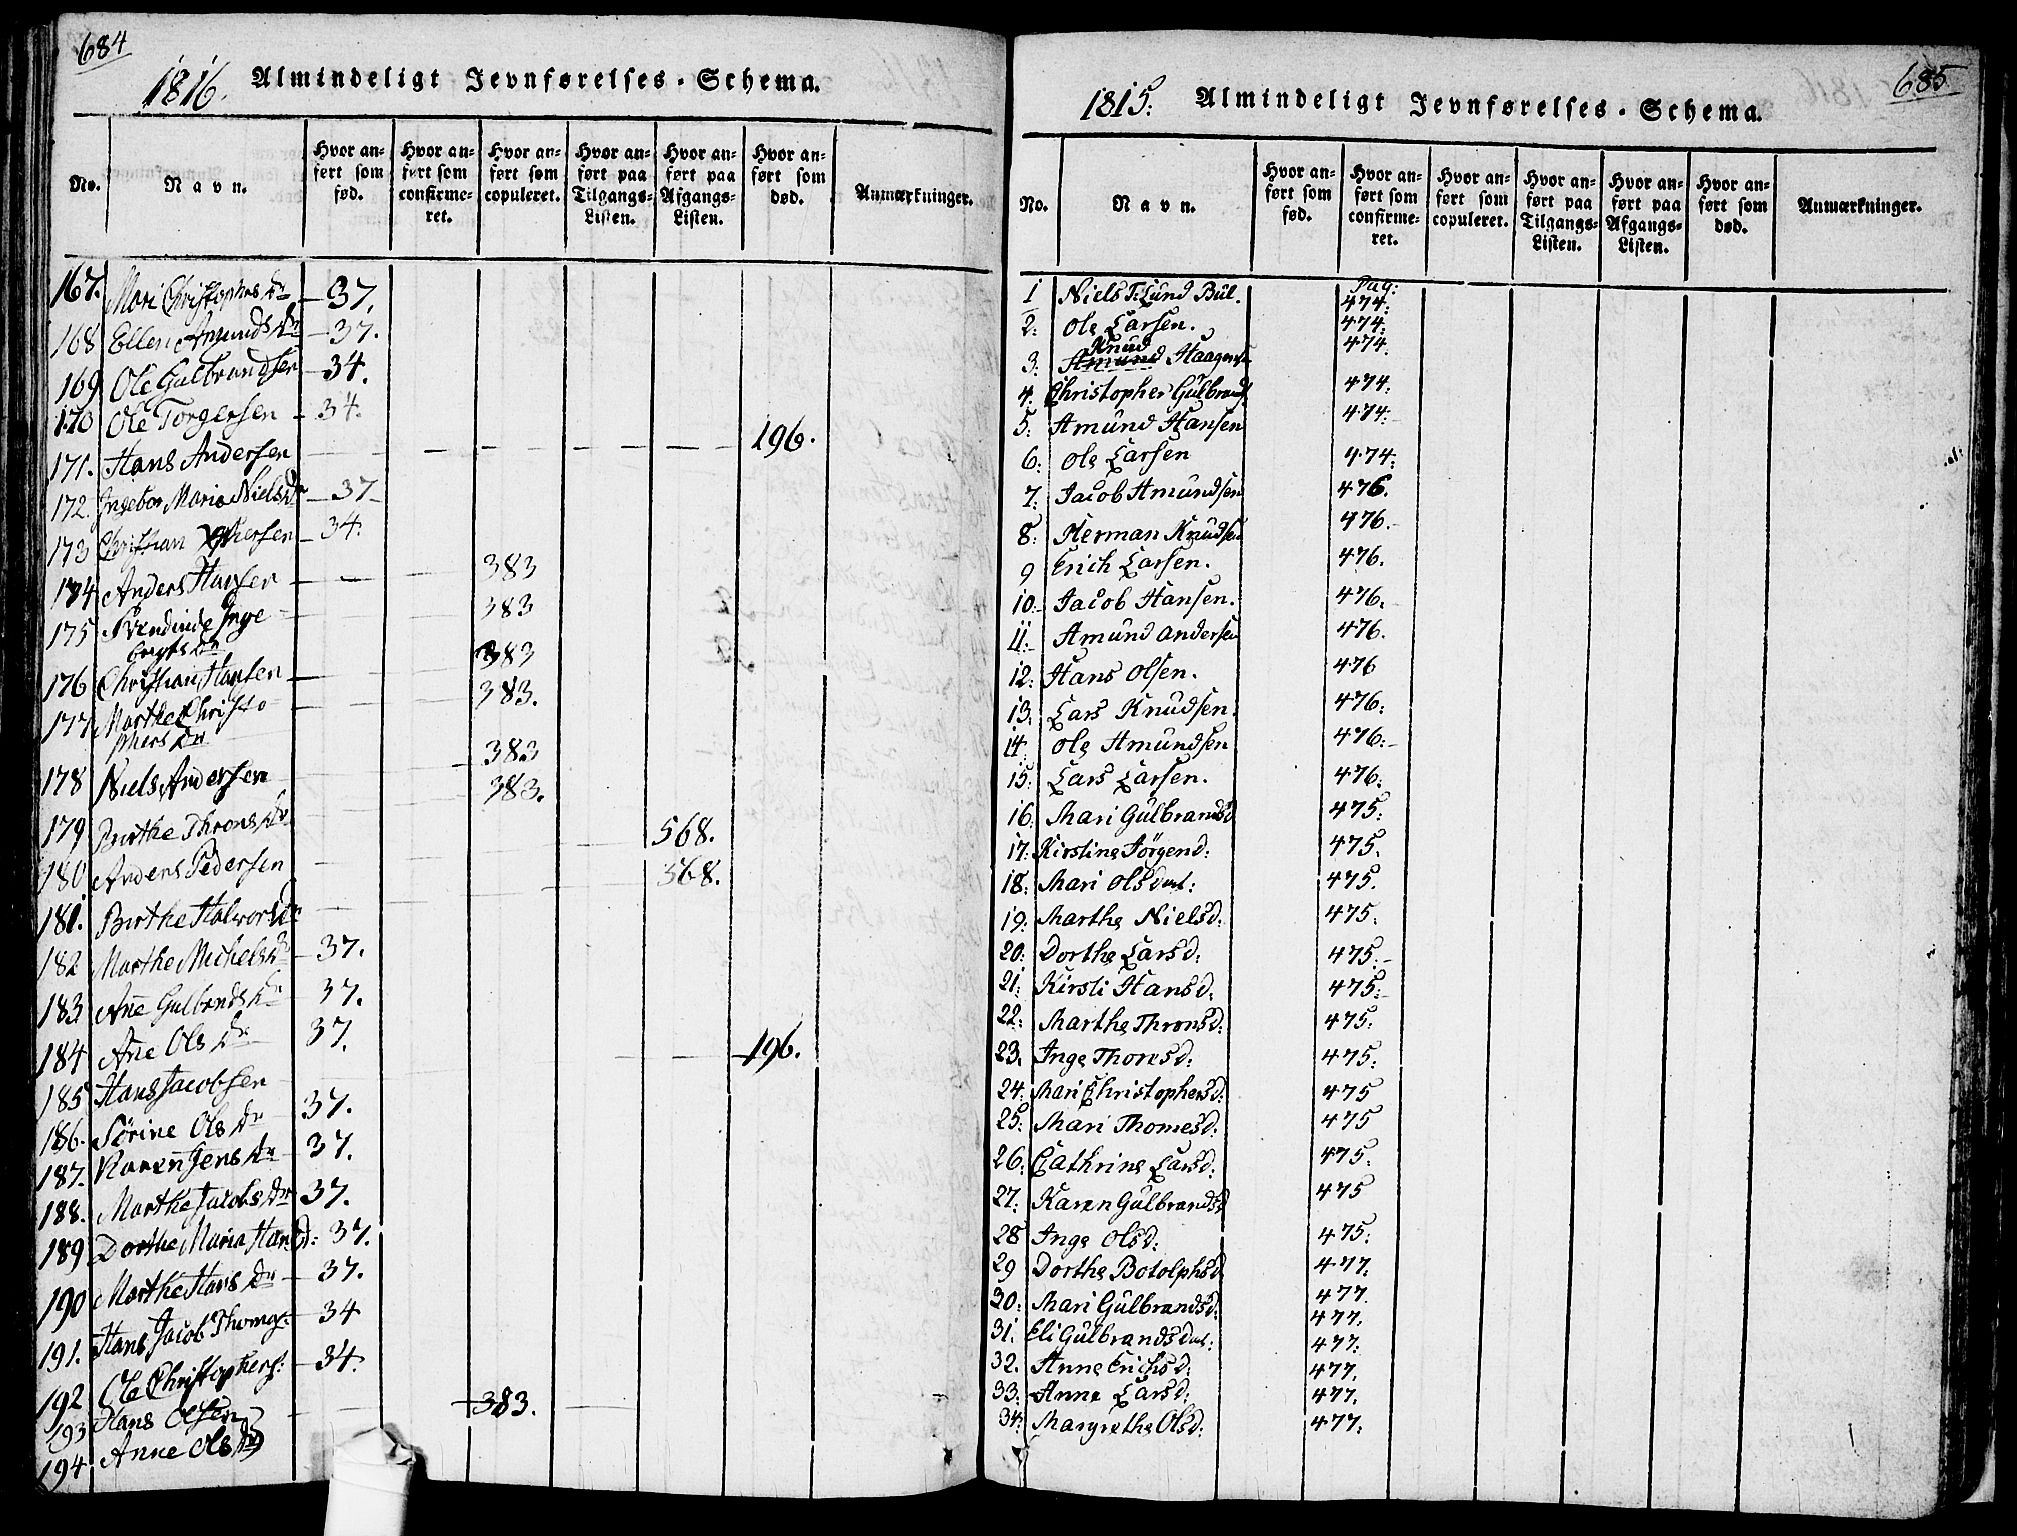 684
1816. Almindeligt Jevnførelses-Schema.
No. Navn. Hvor an-ført som fød. Hvor an-ført som confirme-ret. Hvor an-ført som copuleret. Hvor an-ført paa Tilgangs-Listen. Hvor an-ført paa Afgangs-Listen. Hvor an-ført som død. Anmærkninger.
167. Mari Christophersdr – 37.
168 Ellen Amundsdr – 37.
169 Ole Gulbrandsen – 34.
170 Ole Torgersen – 34.
171. Hans Andersen – – – – – 196.
172. Ingebor Maria Nielsdr – 37–
173 Christian – 34.
174 Anders Hansen – – 383
175 Inge 383
bregtsdr
176 Christian Hansen – 383
177 Marthe Christo 383.
phersdr
178 Niels Andersen 383
179 Birthe Thronsdr 383.
180 Anders Pedersen 568.
181. Birthe Halvorsdr 568.
182 Marthe Michelsdr – 37.
183 Ane Gulbrandsdr 37.
184 Ane Olsdr 37.
185 Hans Jacobsen – – 196.
186. Sörine Olsdr 37.
187. Karen Jensdr 37.
188. Marthe Jacobsdr 37.
189 Dorthe Maria Hansd: 37.
190 Marthe Hansdr – 37.
191. Hans Jacob Thomas: 34
192 Ole Christophers: – 34.
193 Hans Olsen – – 383. –
194 Anne Olsdr
685
1815. Almindeligt Jevnførelses-Schema.
No. Navn. Hvor an-ført som fød. Hvor an-ført som confirme-ret. Hvor an-ført som copuleret. Hvor an-ført paa Tilgangs-Listen. Hvor an-ført paa Afgangs-Listen. Hvor an-ført som død. Anmærkninger.
Pag:
1 Niels T: Lund Bul. 474.
2: Ole Larsen. 474.
Knud
3: Amund Haagens 474.
4: Christopher Gulbrands 474:
5: Amund Hansen 474:
6: Ole Larsen 474:
7: Jacob Amundsen 476.
8: Herman Knudsen 476.
9 Erich Larsen. 476.
10: Jacob Hansen. 476.
11: Amund Andersen 476.
12: Hans Olsen. 476
13: Lars Knudsen. 476:
14: Ole Amundsen 476:
15: Lars Larsen. 476:
16: Mari Gulbrandsd 475:
17: Kirstine Jörgend: 475.
18: Mari Olsdat: 475.
19: Marthe Nielsd: 475:
20: Dorthe Larsd: 475:
21: Kirsti Hansd: 475:
22: Marthe Thronsd: 475:
23. Inge Thomsd: 475:
24: Mari Christophersd: 475
25: Mari Thomesd: 475
26: Cathrine Larsd: 475:
27: Karen Gulbrandsd 475
28 Inge Olsd: 475:
29 Dorthe Botolphsd 477.
30: Mari Gulbrandsd: 477.
31. Eli Gulbrandsdat: 477.
32. Anne Erichsd: 477.
33: Anne Larsd: 477.
34: Margrethe Olsd: 477.